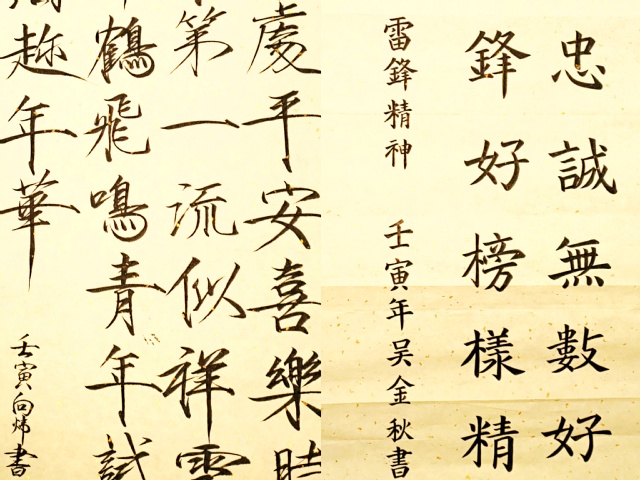 忠誠無數好
鋒好榜樣精
雷鋒精神 壬寅年吴金秋書
處平安喜樂時
第一流似祥雲
鶴飛鳴青年試
趂年華
壬寅向炜書